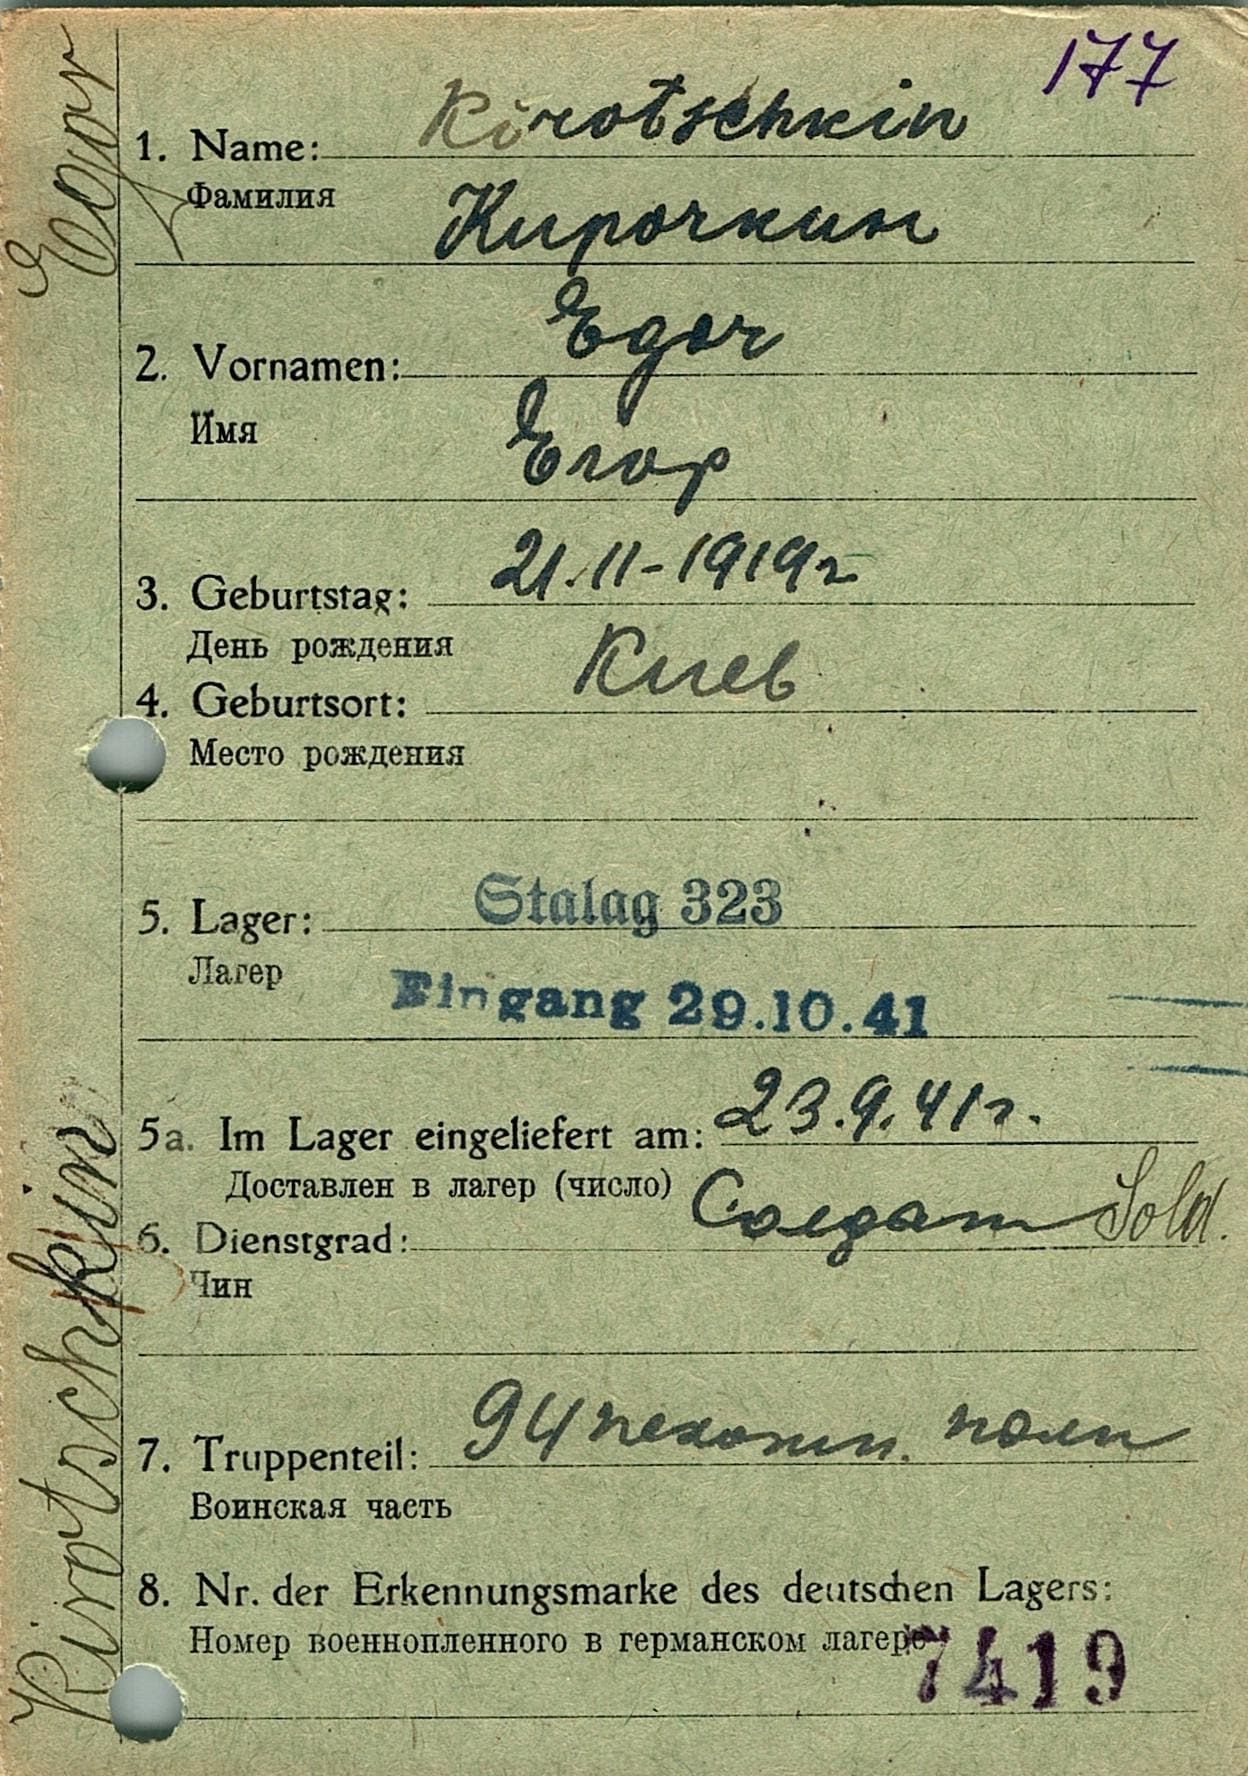 177
1. Name: Kirotschkin
Фамилия Кирочкин
2. Vornamen: Egor
Имя Егор
3. Geburtstag: 21.11-1919г
День рождения
4. Geburtsort: Киев
Место рождения
5. Lager: Stalag 323
Лагер
Eingang 29.10.41
5a. Im Lager eingeliefert am: 23.9.41г.
Доставлен в лагер (число)
6. Dienstgrad: Солдат Sold.
Чин
7. Truppenteil: 94 пехотн. полк
Воинская часть
8. Nr. der Erkennungsmarke des deutschen Lagers:
Номер военнопленного в германском лагере 7419
Kirotschkin Egor